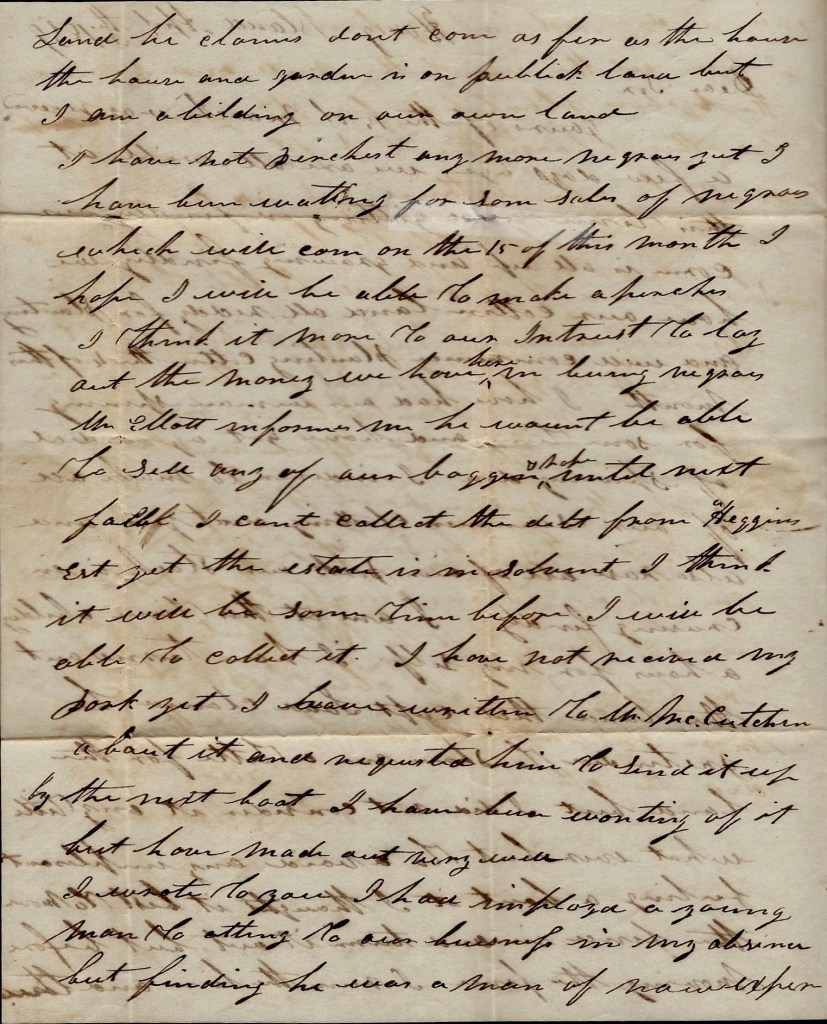 Land he claims dont com as fer as the house
the house and garden is on publick land but
I am abilding on our own land
I have not perchest any more negroes yet I
have bein wating for som sales of negroes
which will com on the 15 of this month I
hope I will be able to make aperches
I think it more to our Intrust to lay
out the money we have here in buing negroes
Mr Ellott informes me he wount be able
to sell any of our baggin & rope until next
fall I cant collect the debt from Heggins
Est yet the estate is in solvent I think
it will be some time before I will be
able to collect it. I have not recived my
pork yet I have written to Mr Mc.Cutchen
about it and requested him to send it up
by the next boat I have bein wonting of it
but have made out very well
I wrote to you I had imployd a young
man to atting to our buisness in my absence
but finding he was a man of now exper